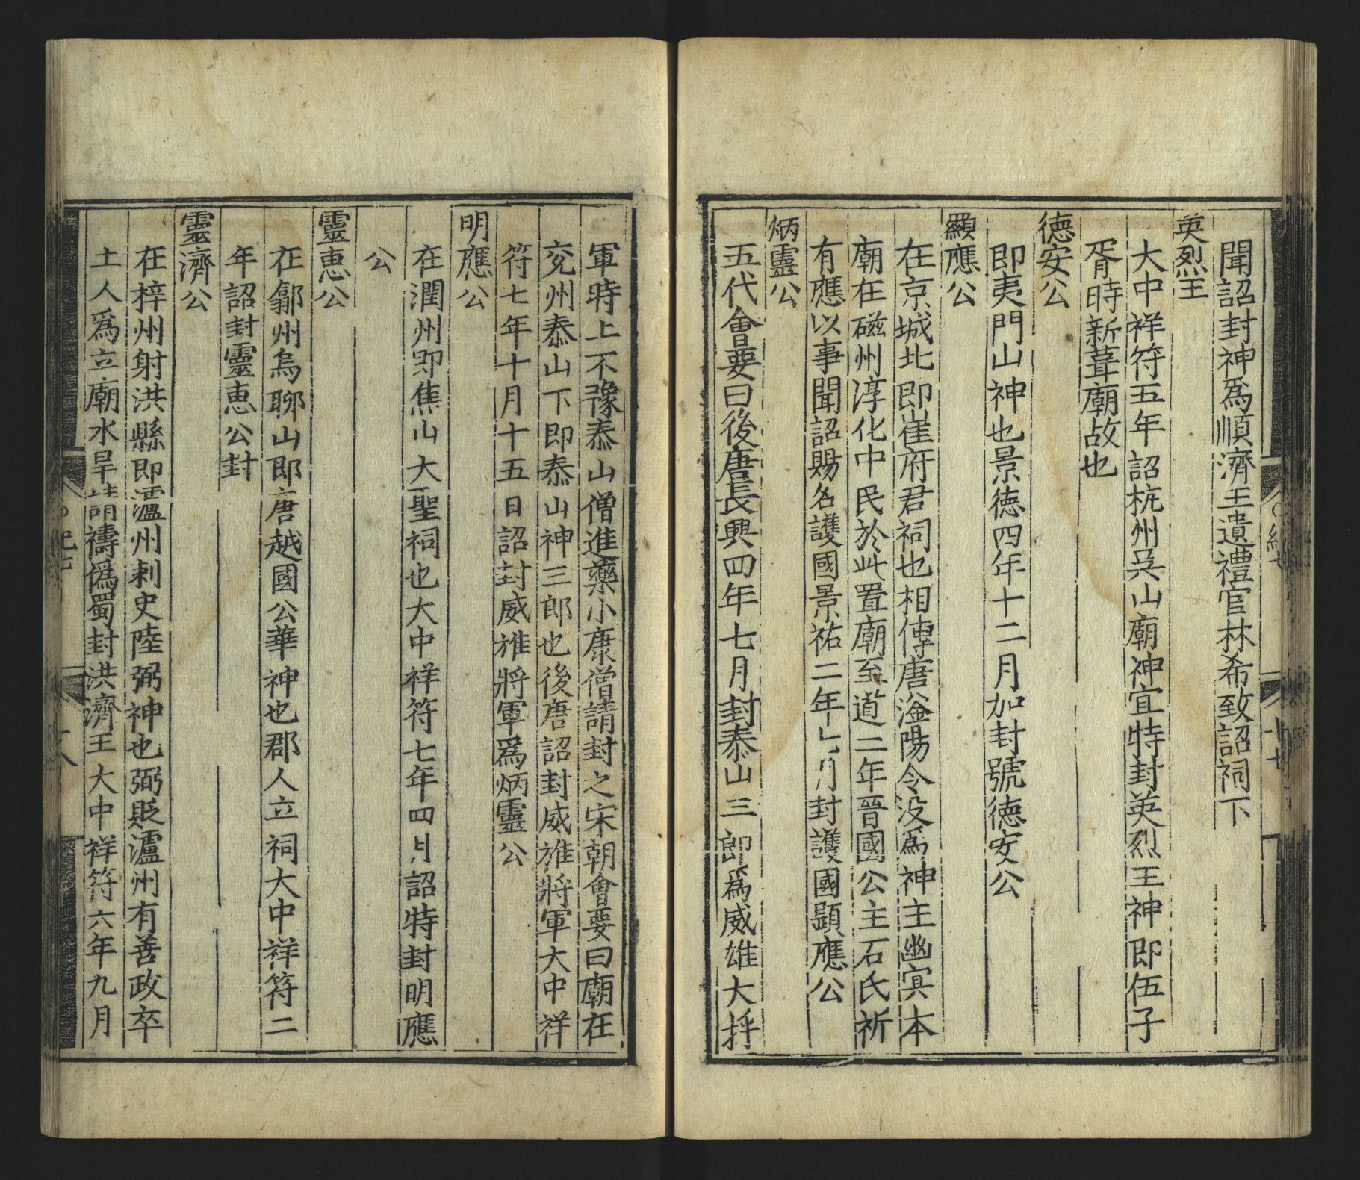 聞詔封神爲順濟王遺禮官林希致詔祠下
英烈王
大中祥符五年詔杭州吳山廟神宜特封英烈王神即伍子
胥時新葺廟故也
德安公
即夷門山神也景德四年十二月加封號德安公
顯應公
在京城北即崔府君祠也相傳唐滏陽令没爲神主幽冥本
廟在磁州淳化中民於此置廟至道二年晉國公主石氏祈
有應以事聞詔賜名護國景祐二年七月封護國顯應公
炳靈公
五代會要曰後唐長興四年七月封泰山三郎爲威雄大將
軍時上不豫泰山僧進藥小康僧請封之宋朝會要曰廟在
兖州泰山下即泰山神三郎也後唐詔封威雄將軍大中祥
符七年十月十五日詔封威雄將軍爲炳靈公
明應公
在潤州即焦山大聖祠也大中祥符七年四月詔特封明應
公
靈惠公
在歙州烏聊山即唐越國公華神也郡人立祠大中祥符二
年詔封靈惠公封
靈濟公
在梓州射洪縣即瀘州刺史陸弼神也弼貶瀘州有善政卒
土人爲立廟水旱請禱僞蜀封洪濟王大中祥符六年九月